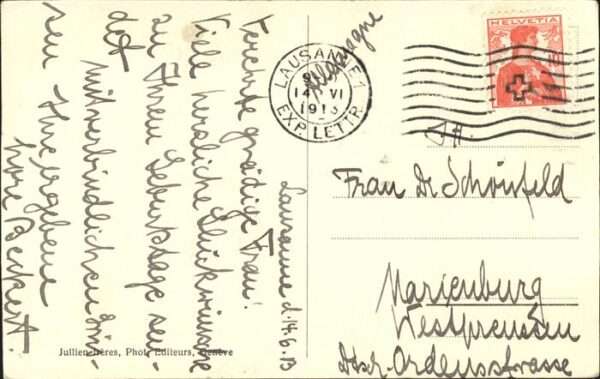 Lausanne d. 14.6.13
Verehrte gnädige Frau!
Viele herzliche Glückwünsche
zu Ihrem Geburtstage sen-
det
mit verbindlichen Grüs-
sen Ihre ergebene
Lore Beckert.
Jullien frères, Phot. Editeurs, Genève
Allemagne
LAUSANNE 1
14 VI
1913
EXP. LETTR.
HELVETIA
Frau Dr Schönfeld
Marienburg
Westpreussen
Dtsch-Ordensstrasse